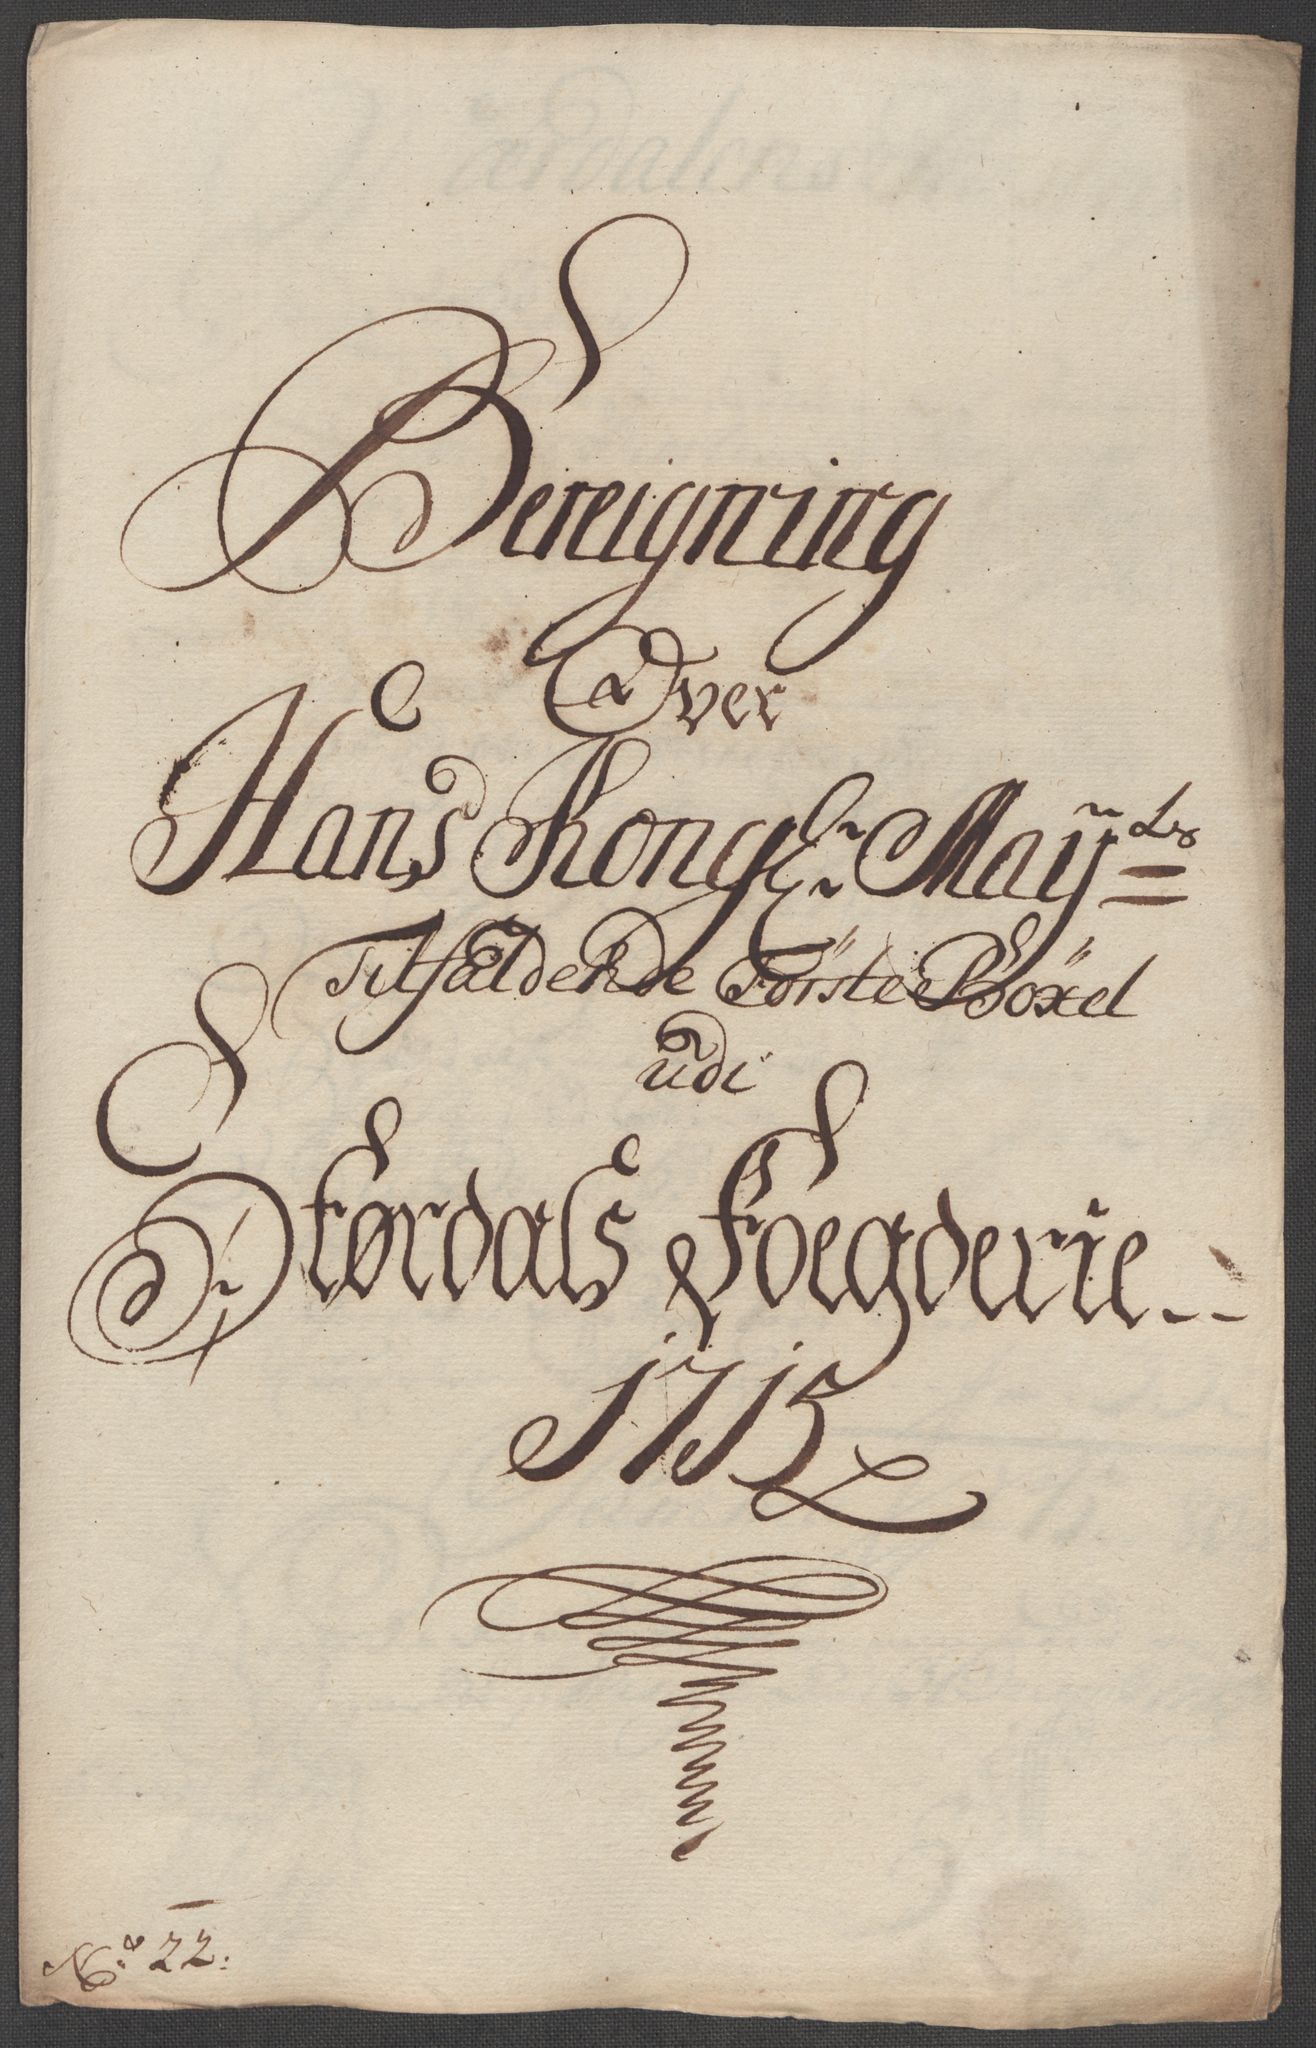 Bereigning
Over
Hans Kongl: May:ts
Tilfaldende Förste Böxel
udi
Størdals Foegderie--
1715
No: 22: